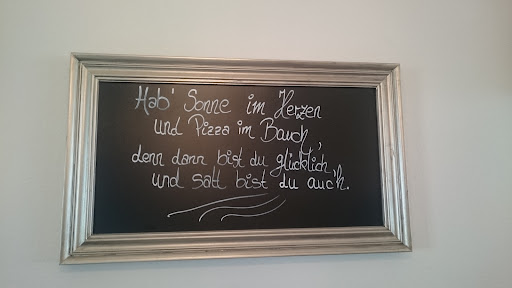 Hab' Sonne im Herzen
und Pizza im Bauch,
denn dann bist du glücklich,
und satt bist du auch.